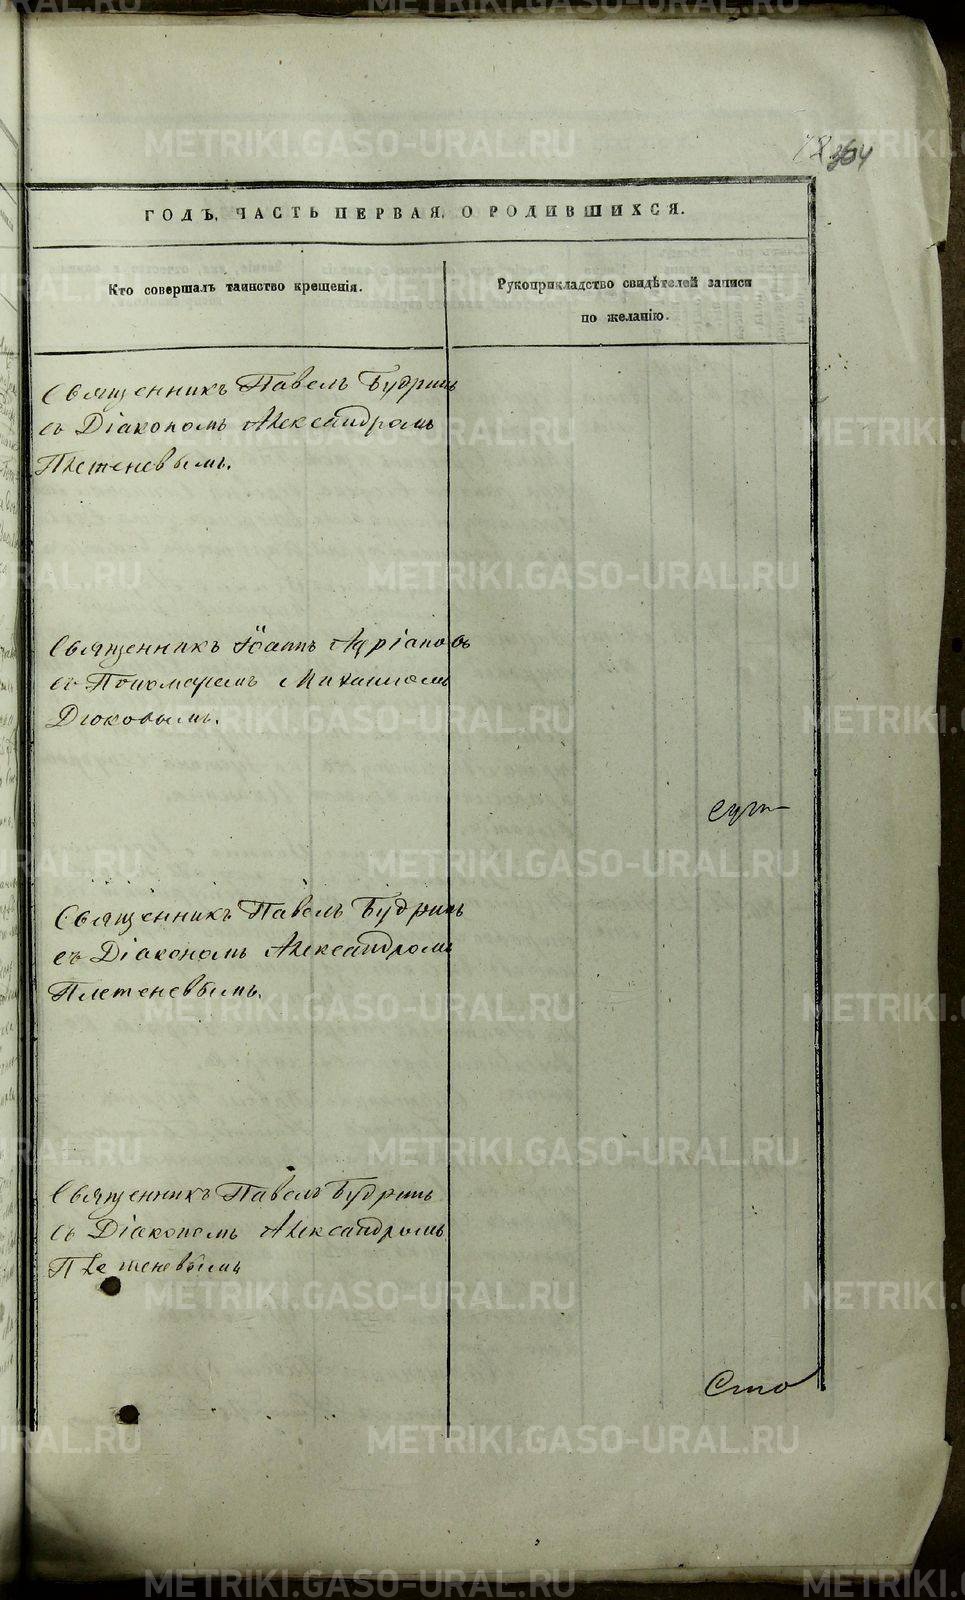 364
ГОДЪ, ЧАСТЬ ПЕРВАЯ, О РОДИВШИХСЯ.
Кто совершалъ таинство крещенія.
Рукоприкладство свидѣтелей записи
по желанію.
Священникъ Павелъ Будринъ
съ Діакономъ Александромъ
Плетеневымъ.
Священникъ Іоаннъ Адріановъ
съ Пономаремъ Михаиломъ
Дюковымъ.
Священникъ Павелъ Будринъ
съ Діакономъ Александромъ
Плетеневымъ.
Священникъ Павелъ Будринъ
съ Діакономъ Александромъ
Плетеневымъ
Сто
METRIKI.GASO-URAL.RU